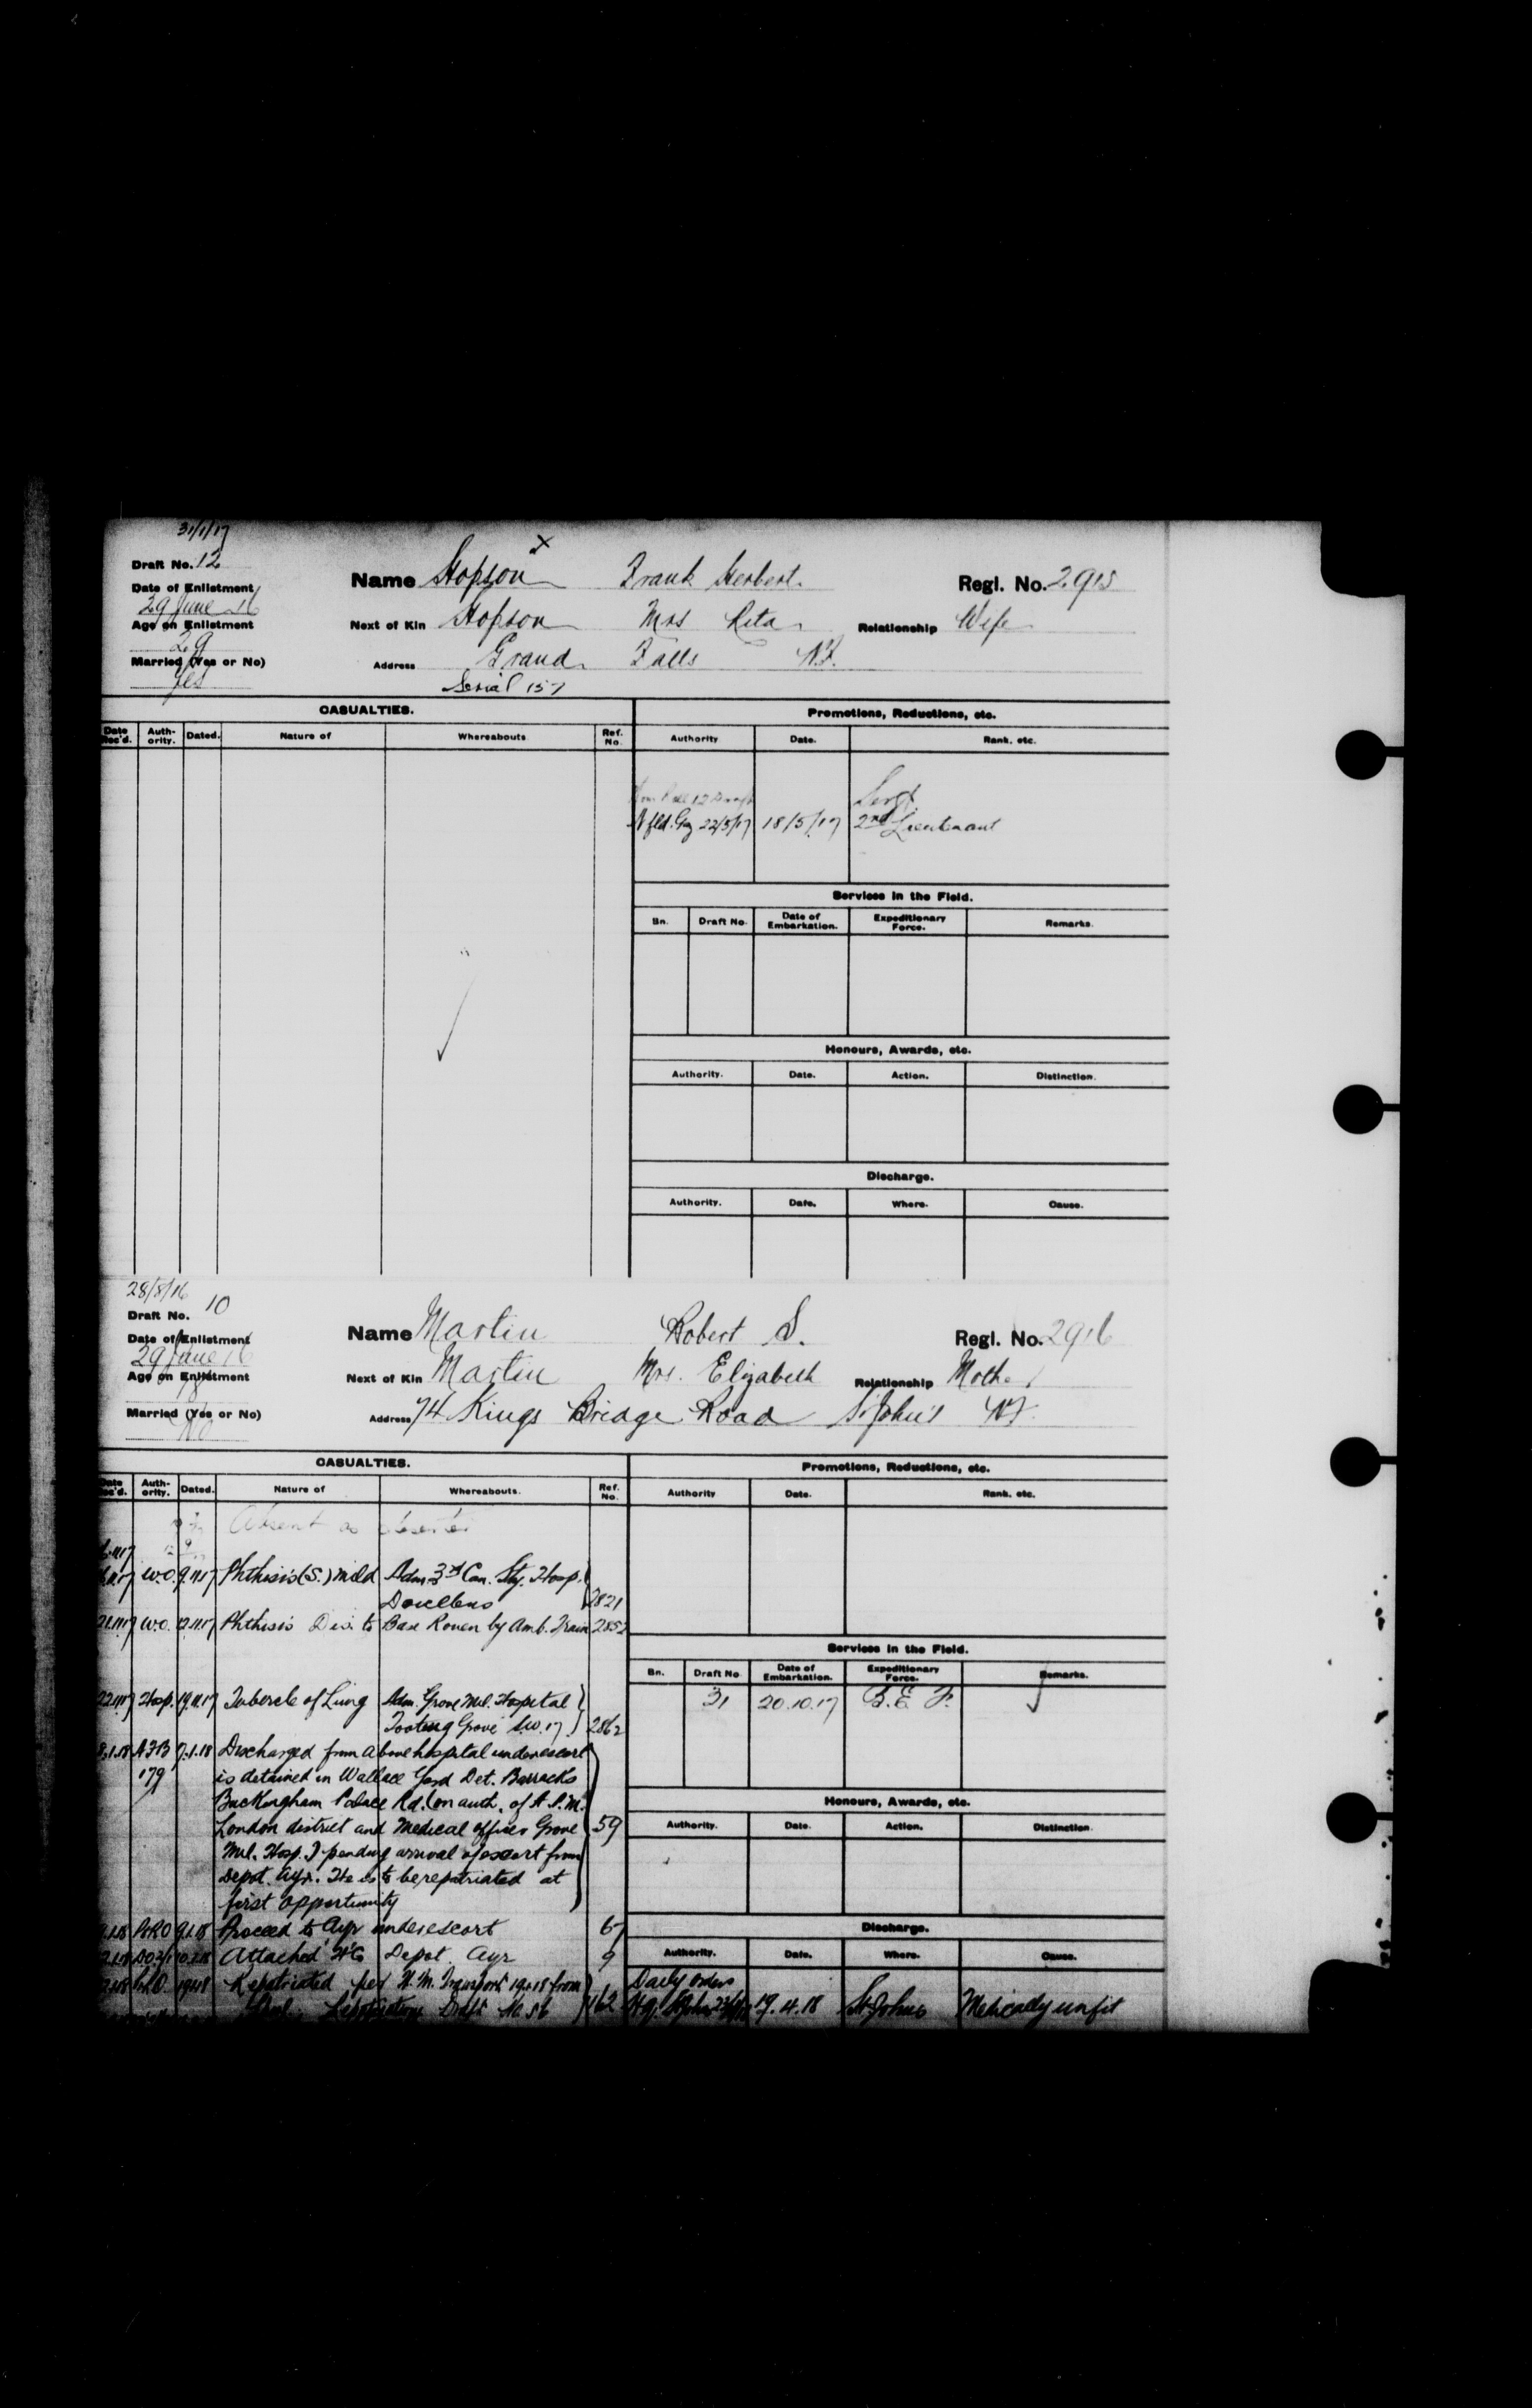 31/1/17
Draft No. 12
Name Hopson x Frank Herbert. Regl. No. 2915
Date of Enlistment
29 June 16
Age on Enlistment
29
Next of Kin Hopson Mrs Rita Relationship Wife
Married (Yes or No)
Yes
Address Grand Falls N.F.
Serial 157
CASUALTIES. Promotions, Reductions, etc.
Date Rec'd. Auth-ority. Dated. Nature of Whereabouts Ref. No. Authority Date. Rank, etc.
12 Draft Sergt
Nfld. Gaz 22/5/17 18/5/17 2nd Lieutenant
Services in the Field.
Bn. Draft No. Date of Embarkation. Expeditionary Force. Remarks.
Honours, Awards, etc.
Authority. Date. Action. Distinction.
Discharge.
Authority. Date. Where. Cause.
28/8/16
Draft No. 10
Name Martin Robert S. Regl. No. 2916
Date of Enlistment
29 June 16
Age on Enlistment
Next of Kin Martin Mrs. Elizabeth Relationship Mother
Married (Yes or No)
No
Address 74 Kings Bridge Road St. John's NF.
CASUALTIES. Promotions, Reductions, etc.
Date Rec'd. Auth-ority. Dated. Nature of Whereabouts. Ref. No. Authority Date. Rank, etc.
Absent as deserter
W.O. 9.11.17 Phthisis (S.) mild Adm. 3rd Can. Sty. Hosp.
Doullens 2821
21.11.17 W.O. 12.11.17 Phthisis Dis. to Base Rouen by Amb. Train 2852
Services in the Field.
Bn. Draft No Date of Embarkation. Expeditionary Force. Remarks.
31 20.10.17 B.E.F.
22.11.17 Hosp. 19.11.17 Tubercle of Lung Adm. Grove Mil. Hospital
Tooting Grove S.W.17 2862
8.1.18 A.F.B 179 7.1.18 Discharged from above hospital under escort
is detained in Wallace Yard Det. Barracks
Buckingham Palace Rd. (on auth. of A.P.M.
London district and Medical officer Grove 59
Mil. Hosp.) pending arrival of escort from
Depot. Ayr. He is to be repatriated at
first opportunity
Honours, Awards, etc.
Authority. Date. Action. Distinction.
P&RO 9.1.18 Proceed to Ayr under escort 67
Attached "H" Co Depot Ayr 9
Discharge.
Authority. Date. Where. Cause.
Repatriated per H.M. Transport from
Draft No 56 162
Daily orders
Hq. St Johns 19.4.18 St. Johns Medically unfit